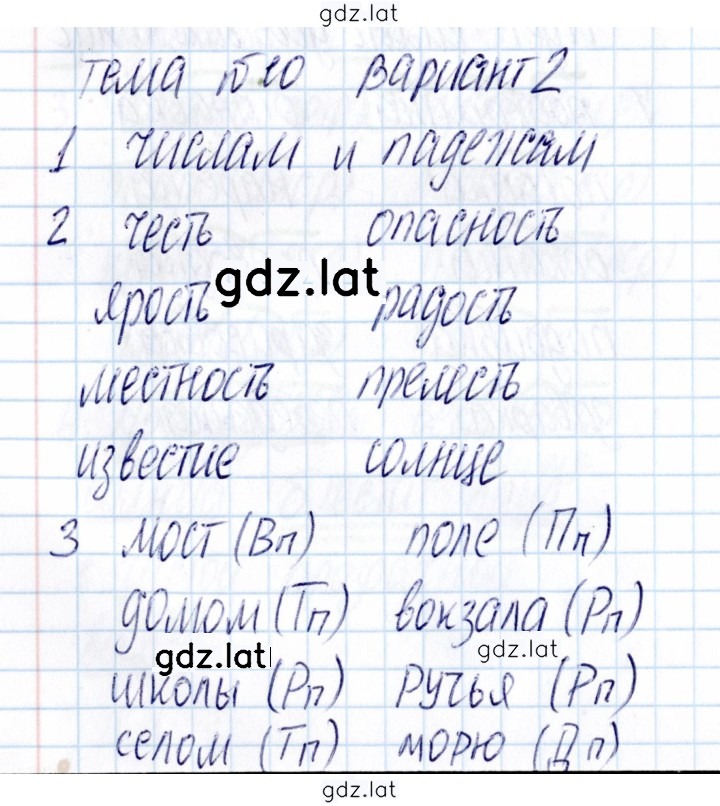 gdz.lat
тема №10 вариант 2
1 числам и падежам
2 честь опасность
gdz.lat
ярость радость
местность прелесть
известие солнце
3 мост (Вп) поле (Пп)
домом (Тп) вокзала (Рп)
gdz.lat gdz.lat
школы (Рп) ручья (Рп)
селом (Тп) морю (Дп)
gdz.lat